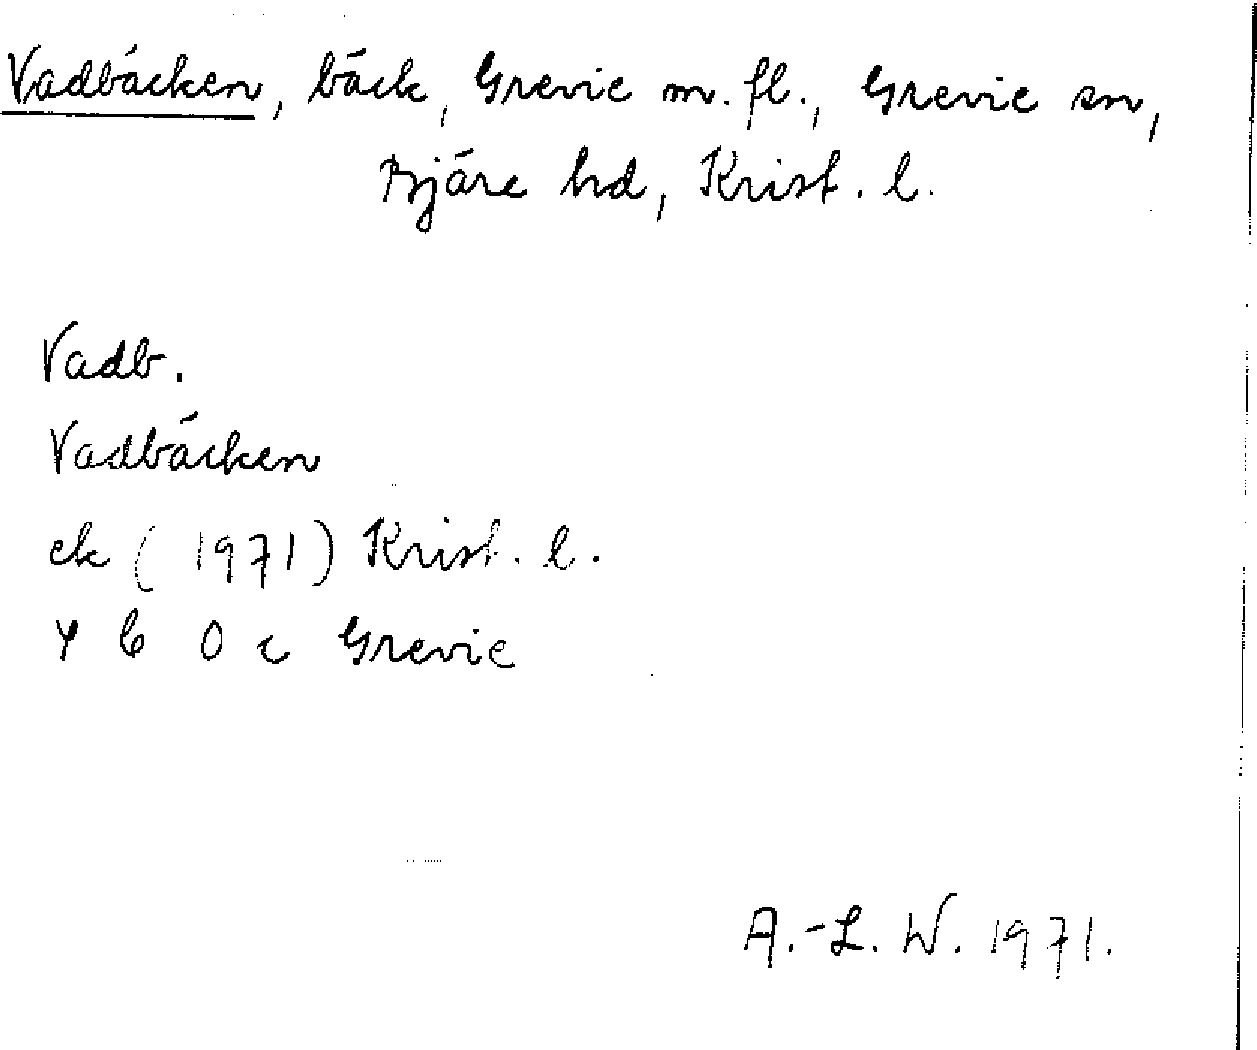 Vadbäcken, bäck, Grevie m. fl., Grevie sn,
Bjäre hd, Krist. l.
Vadb.
Vadbäcken
ek (1971) Krist. l.
4 C 0 c Grevie
A.-L. W. 1971.